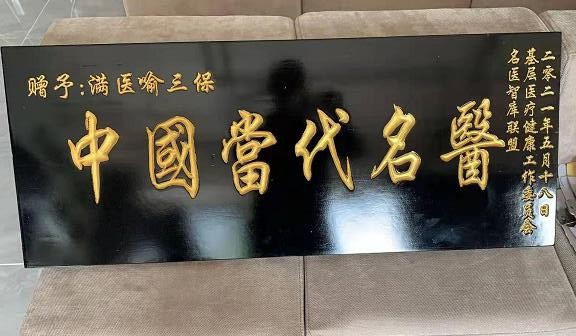 赠予:满医喻三保
中國當代名醫
二零二一年五月十八日
基层医疗健康工作委员会
名医智库联盟